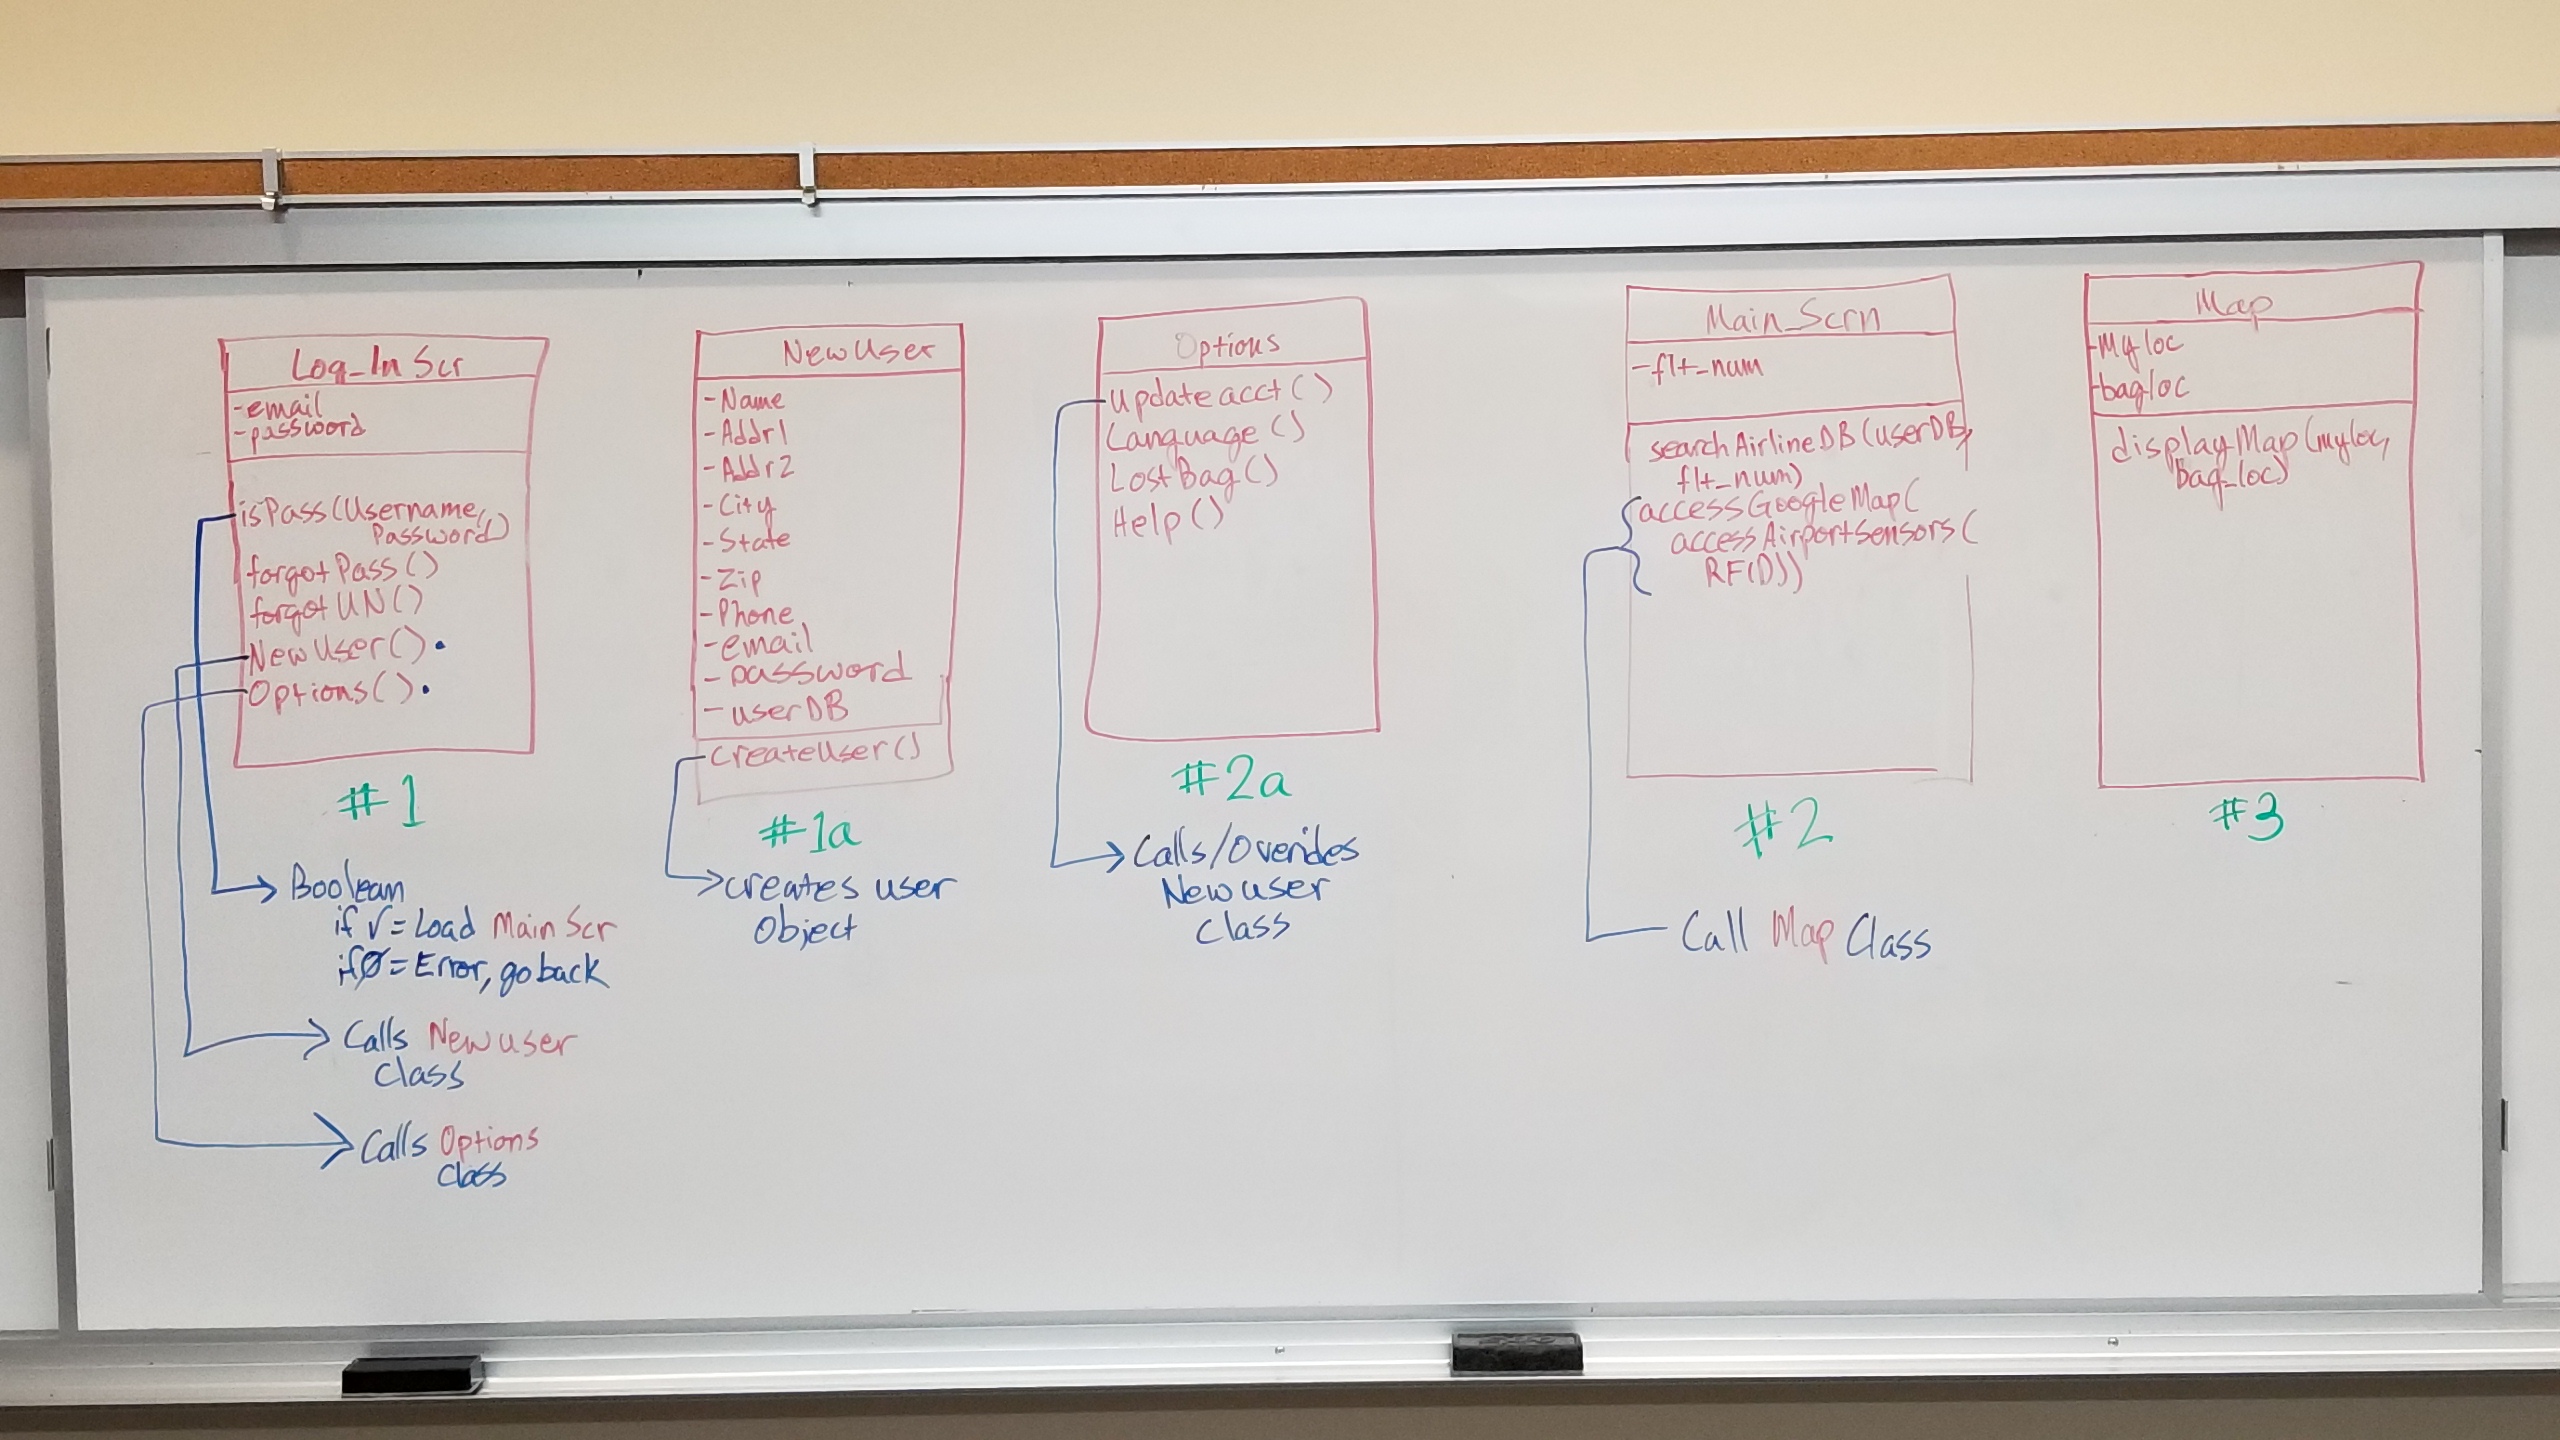 Log_In Scr
-email
-password
isPass(Username,
Password)
forgotPass()
forgotUN()
NewUser().
Options().
#1
Boolean
if √=Load Main Scr
if Ø=Error, go back
Calls New user
Class
Calls Options
Class
NewUser
-Name
-Addr1
-Addr2
-City
-State
-Zip
-Phone
-email
-password
-userDB
createUser()
#1a
creates user
Object
Options
updateacct()
Language()
LostBag()
Help()
#2a
Calls/Overides
New user
Class
Main_Scrn
-flt_num
searchAirlineDB(userDB,
flt_num)
accessGoogleMap(
accessAirportSensors(
RFID))
#2
Call Map Class
Map
-Myloc
-bagloc
displayMap(myloc,
Bag_loc)
#3